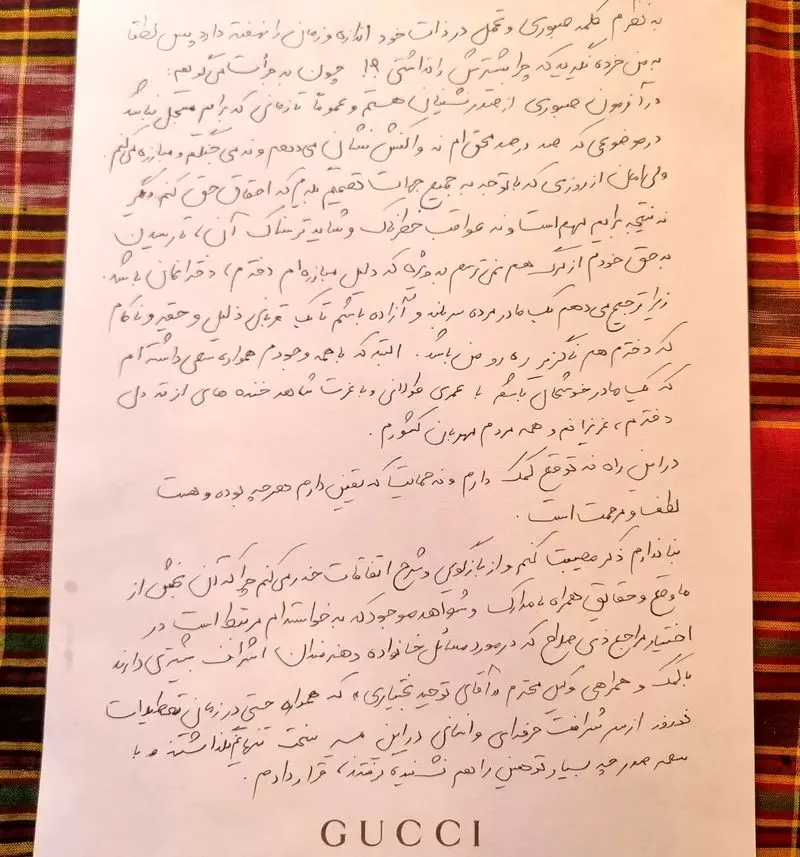 به نظرم کلمه صبوری و تحمل در ذات خود اندازه و زمانی را نهفته دارد پس لطفا
به من خرده نگیرید که چرا بیشترش را نداشتی؟! چون به جرأت می‌گویم:
در آزمون صبوری از صدرنشینان هستم و عموماً تا زمانی که برایم مسجل نباشد
در موضوعی که صد درصد محق‌ام نه واکنش نشان می‌دهم و نه می‌جنگم و مبارزه می‌کنم.
ولی امان از روزی که با توجه به جمیع جهات تصمیم بگیرم که احقاق حق کنم دیگر
نه نتیجه برایم مهم است و نه عواقب خطرناک و شاید ترسناک آن، تا رسیدن
به حق خودم از مرگ هم نمی‌ترسم به ویژه که دلیل مبارزه‌ام دخترم، دخترانمان باشد.
زیرا ترجیح می‌دهم یک مادر مرده سربلند و آزاده باشم تا یک قربانی ذلیل و حقیر و ناکام
که دخترم هم ناگزیر ره رو من باشد. البته که با همه وجودم همواره سعی داشته‌ام
که یک مادر خوشحال باشم با عمری طولانی و با عزت شاهد خنده های از ته دل
دخترم، عزیزانم و همه مردم مهربان کشورم.
در این راه نه توقع کمک دارم و نه حمایت که یقین دارم هرچه بوده و هست
لطف و مرحمت است.
بنا ندارم ذکر مصیبت کنم و از بازگویی و شرح اتفاقات حذر می‌کنم چرا که آن بخش از
ماوقع و حقایق همراه با مدارک و شواهد موجود که به خواسته‌ام مرتبط است در
اختیار مراجع ذی صلاح که در مورد مسائل خانواده و هنرمندان اشراف بیشتری دارند
با کمک و همراهی وکیل محترم «آقای توحید بختیاری» که همواره حتی در زمان تعطیلات
نوروز از سر شرافت حرفه‌ای و انسانی در این مسیر سخت تنهایم نگذاشتند و با
سعه صدر چه بسیار توهینی را هم نشنیده گرفتند، قرار دادم.
GUCCI